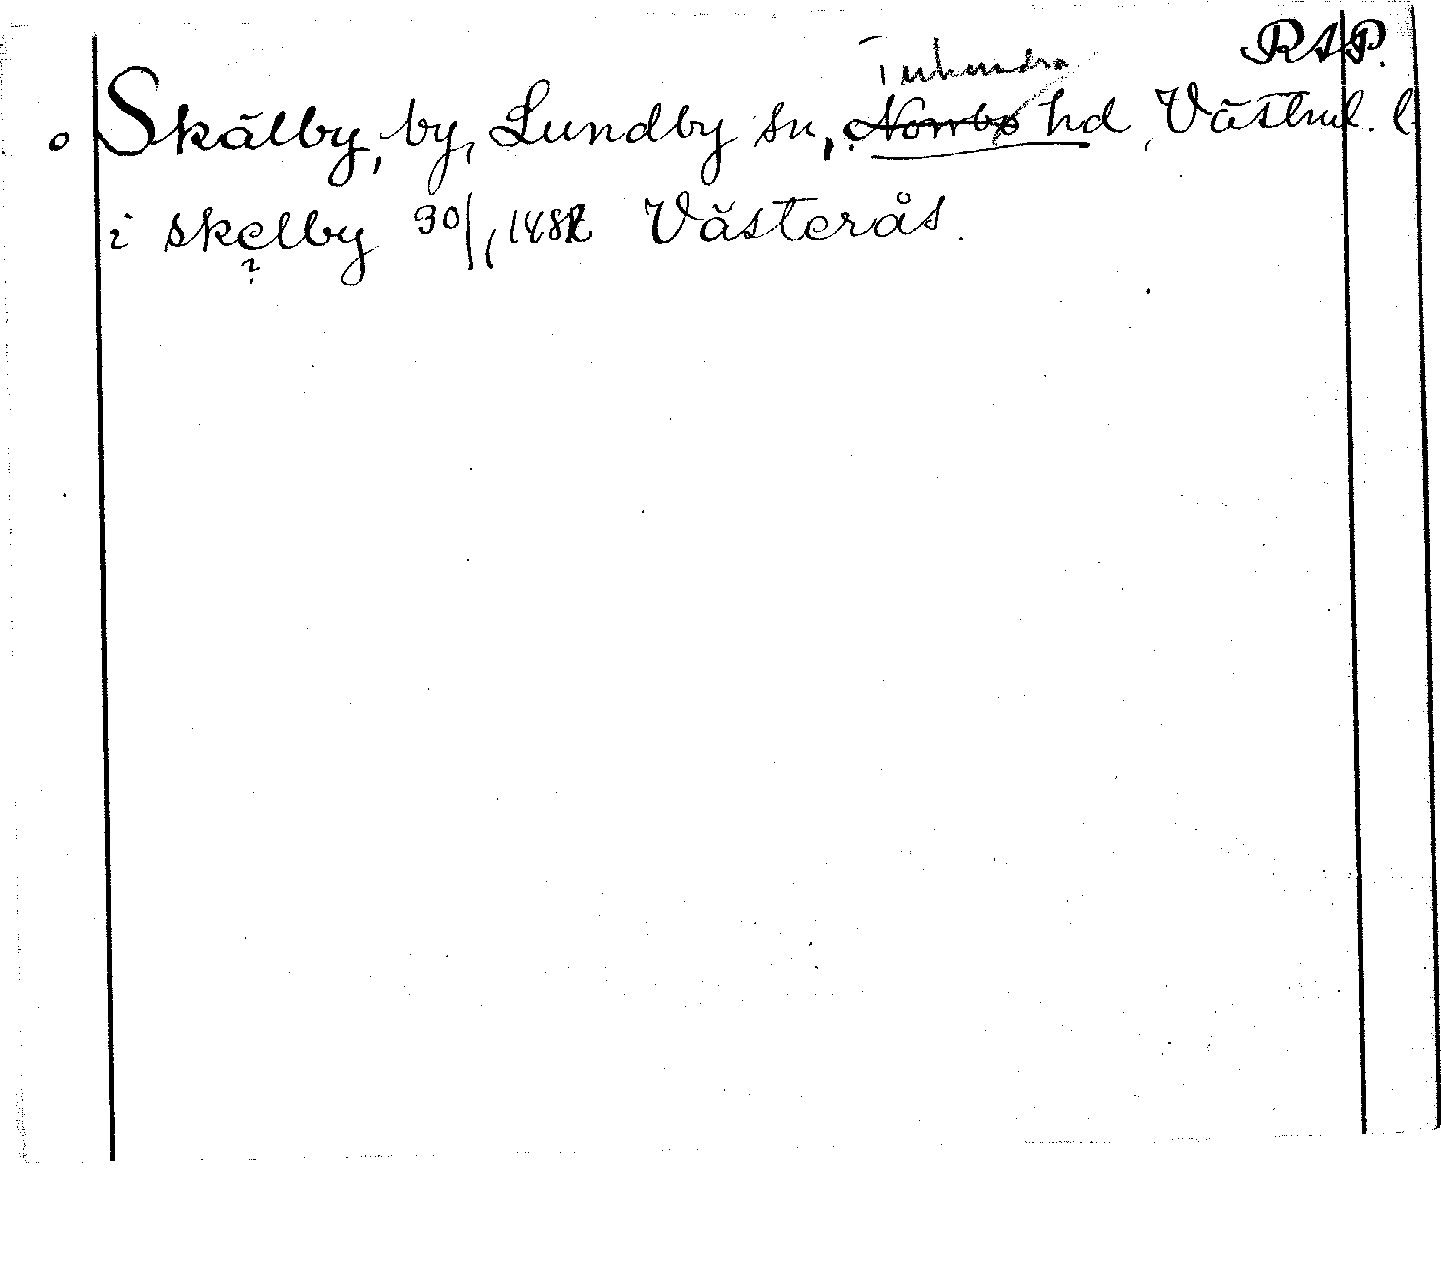 RAP.
Tuhundra
o Skälby, by, Lundby sn, Norrbo hd, Västml. l
i skelby 30/1 1482 Västerås.
?